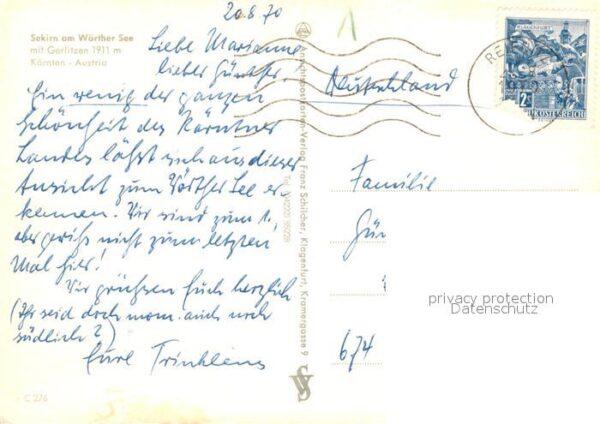 20.8.70
1
Sekirn am Wörther See
mit Gerlitzen 1911 m
Kärnten - Austria
Liebe Marianne
lieber Günther,
Ein wenig der ganzen
Schönheit des Kärntner
Landes läßt sich aus dieser
Ansicht zum Wörther See er
kennen. Wir sind zum 1.,
aber gewiß nicht zum letzten
Mal hier!
Wir grüßen Euch herzlich
(Ihr seid doch mom. auch noch
südlich?)
Eure Trinkleins
C 276
Ansichtspostkarten-Verlag Franz Schilcher, Klagenfurt, Kramergasse 9
KLAGENFURT
2
REPUBLIK ÖSTERREICH
Deutschland
Familie
Gün
674
privacy protection
Datenschutz